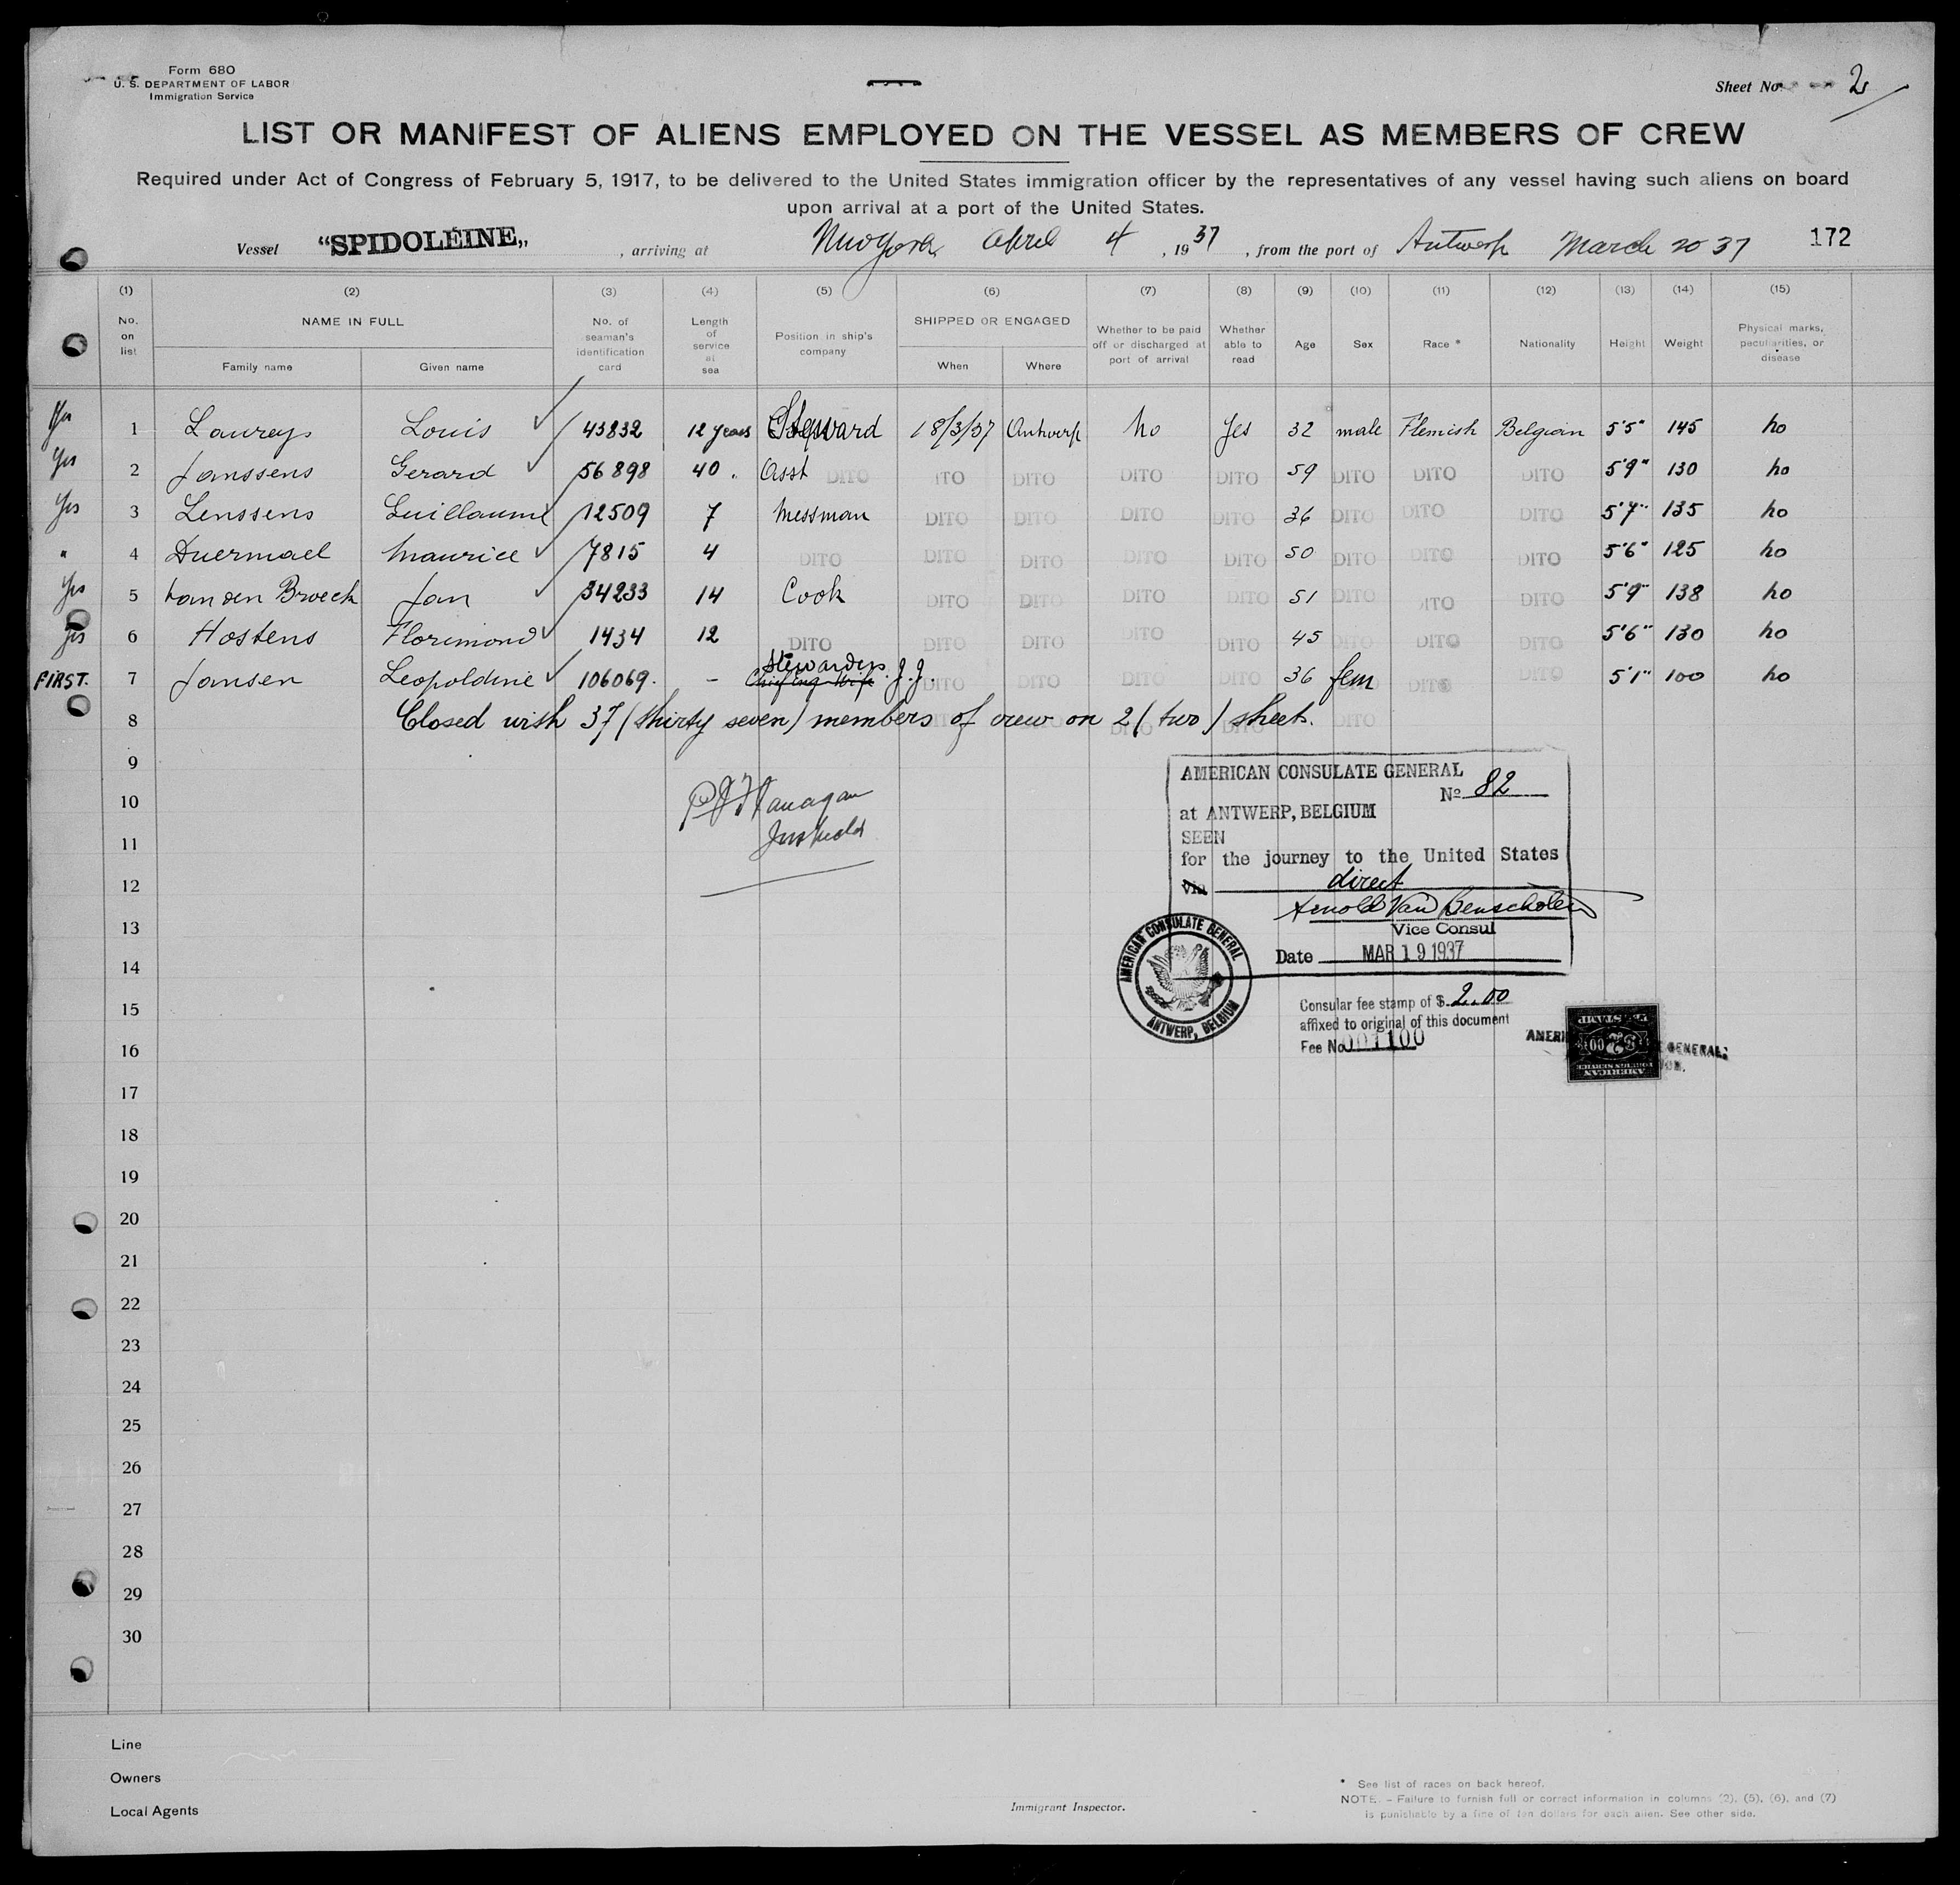 Form 680
U. S. DEPARTMENT OF LABOR
Immigration Service
Sheet No. 2
LIST OR MANIFEST OF ALIENS EMPLOYED ON THE VESSEL AS MEMBERS OF CREW
Required under Act of Congress of February 5, 1917, to be delivered to the United States immigration officer by the representatives of any vessel having such aliens on board
upon arrival at a port of the United States.
Vessel "SPIDOLÉINE„ , arriving at New York April 4 , 1937 , from the port of Antwerp March 20 37 172
(1) (2) (3) (4) (5) (6) (7) (8) (9) (10) (11) (12) (13) (14) (15)
No. on list NAME IN FULL Family name Given name No. of seaman's identification card Length of service at sea Position in ship's company SHIPPED OR ENGAGED When Where Whether to be paid off or discharged at port of arrival Whether able to read Age Sex Race * Nationality Height Weight Physical marks, peculiarities, or disease
Yes 1 Laureys Louis 43832 12 years Steward 18/3/37 Antwerp No Yes 32 male Flemish Belgian 5'5" 145 no
Yes 2 Janssens Gerard 56898 40 " Asst DITO DITO DITO DITO DITO 59 DITO DITO DITO 5'9" 130 no
Yes 3 Lenssens Guillaume 12509 7 Messman DITO DITO DITO DITO 36 DITO DITO DITO 5'7" 135 no
" 4 Duermael Maurice 7815 4 DITO DITO DITO DITO DITO 50 DITO DITO DITO 5'6" 125 no
Yes 5 Van den Broeck Jan 34233 14 Cook DITO DITO DITO DITO 51 DITO DITO DITO 5'9" 138 no
Yes 6 Hostens Florimond 1434 12 DITO DITO DITO DITO DITO 45 DITO DITO DITO 5'6" 130 no
FIRST. 7 Jansen Leopoldine 106069. - Stewardess Chief Eng. Wife J.J. DITO DITO DITO DITO 36 fem DITO DITO 5'1" 100 no
8 Closed with 37 (thirty seven) members of crew on 2 (two) sheets. DITO
9
10
11
12
13
14
15
16
17
18
19
20
21
22
23
24
25
26
27
28
29
30
AMERICAN CONSULATE GENERAL
No 82
at ANTWERP, BELGIUM
SEEN
for the journey to the United States
via direct
Arnold Van Benscholen
Vice Consul
Date MAR 19 1937
AMERICAN CONSULATE GENERAL
ANTWERP, BELGIUM
Consular fee stamp of $ 2.00
affixed to original of this document
Fee No. 001100
AMERICAN
FOREIGN SERVICE
$2.00
FEE STAMP
Line
Owners
Local Agents
Immigrant Inspector.
* See list of races on back hereof.
NOTE. – Failure to furnish full or correct information in columns (2), (5), (6), and (7)
is punishable by a fine of ten dollars for each alien. See other side.